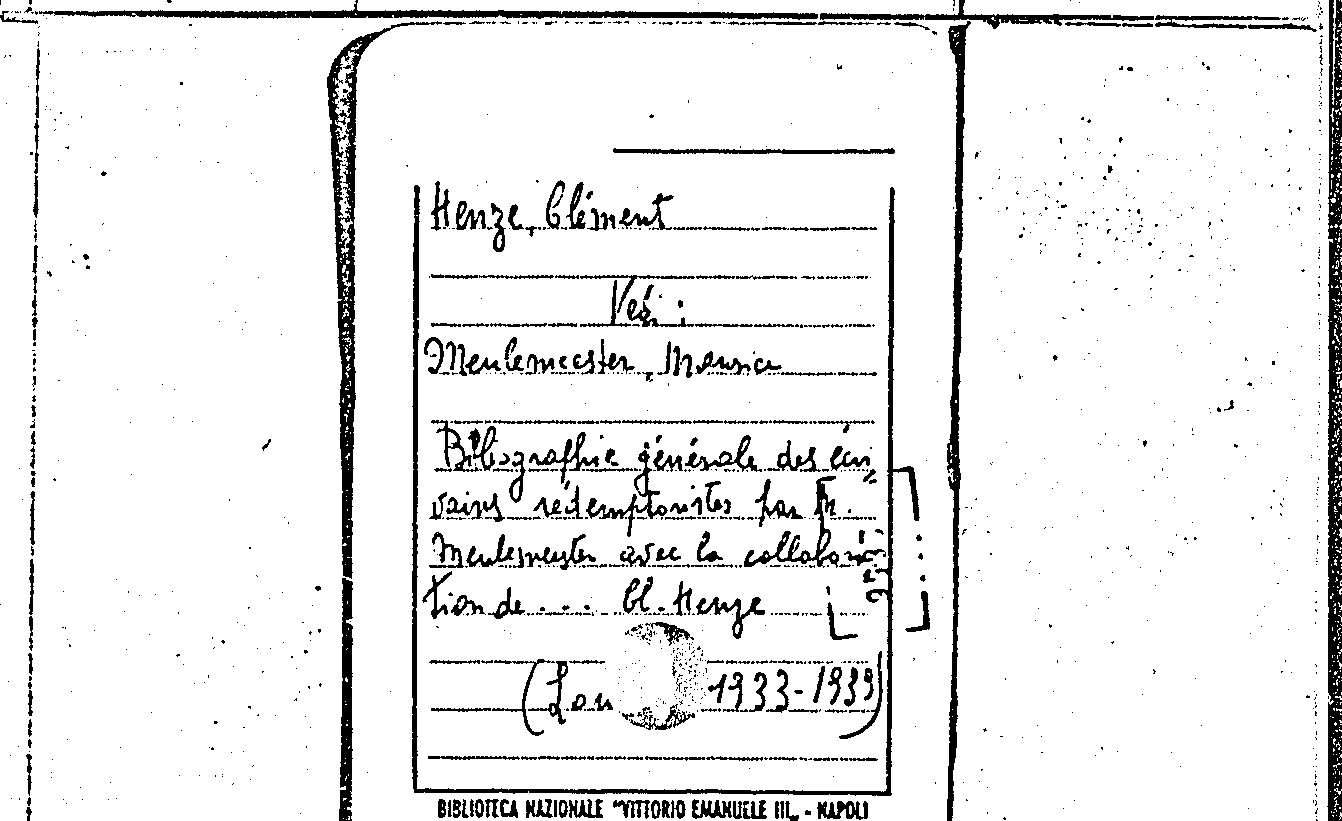 Henze, Clément
Ved. :
Meulemeester, Maurice
Bibliographie générale des écri=
vains rédemptoristes par M.
Meulemeester avec la collabora=
tion de ... Cl. Henze
(Lou 1933-1939)
BIBLIOTECA NAZIONALE "VITTORIO EMANUELE III„ - NAPOLI